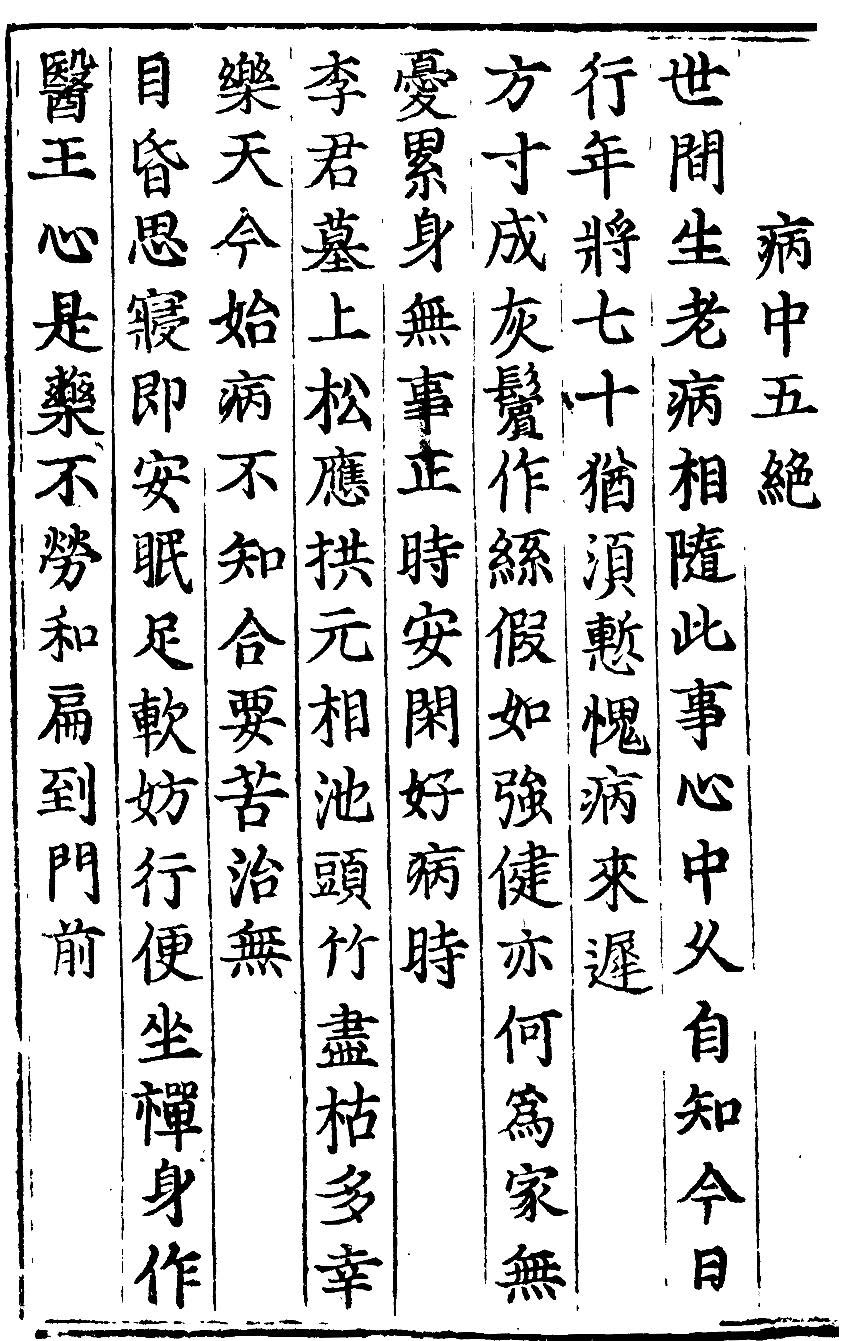 病中五絶
世間生老病相隨此事心中乆自知今日
行年將七十猶湏慙愧病來遲
方寸成灰鬢作絲假如強健亦何爲家無
憂累身無事正時安閑好病時
李君墓上松應拱元相池頭竹盡枯多幸
樂天今始病不知合要苦治無
目昏思寢即安眠足軟妨行便坐禪身作
醫王心是藥不勞和扁到門前